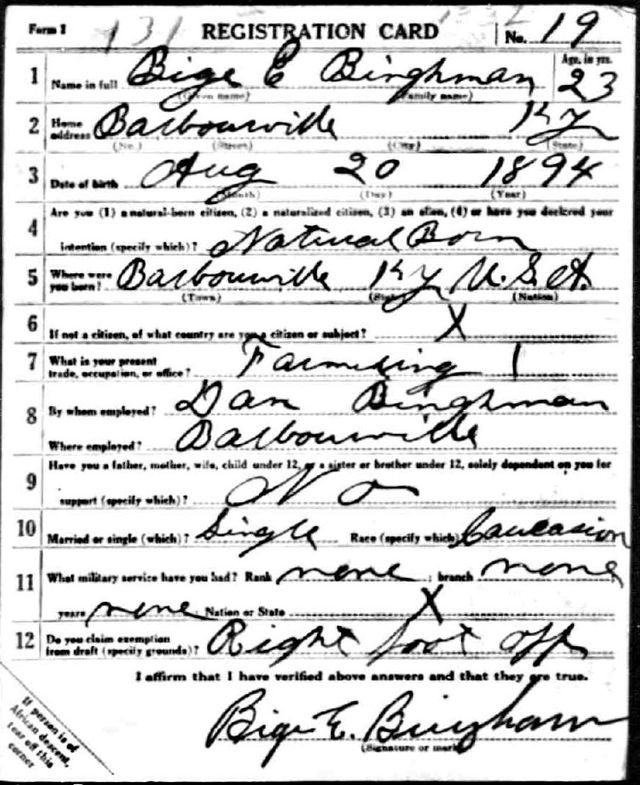 Form 1 131 REGISTRATION CARD No. 19
1 Name in full Bige E Binghman Age, in yrs. 23
(Given name) (Family name)
2 Home address Barbourville Ky
(No.) (Street) (City) (State)
3 Date of birth Aug 20 1894
(Month) (Day) (Year)
4 Are you (1) a natural-born citizen, (2) a naturalized citizen, (3) an alien, (4) or have you declared your
intention (specify which)? Natural Born
5 Where were you born? Barbourville Ky U.S.A.
(Town) (State) (Nation)
6 If not a citizen, of what country are you a citizen or subject? X
7 What is your present trade, occupation, or office? Farmering 1
8 By whom employed? Dan Binghman
Where employed? Barbourville
9 Have you a father, mother, wife, child under 12, or a sister or brother under 12, solely dependent on you for
support (specify which)? No
10 Married or single (which)? Single Race (specify which) Caucasion
11 What military service have you had? Rank none ; branch none
years none Nation or State X
12 Do you claim exemption from draft (specify grounds)? Right foot off
I affirm that I have verified above answers and that they are true.
Bige E. Bingham
(Signature or mark)
If person is of
African descent,
tear off this
corner